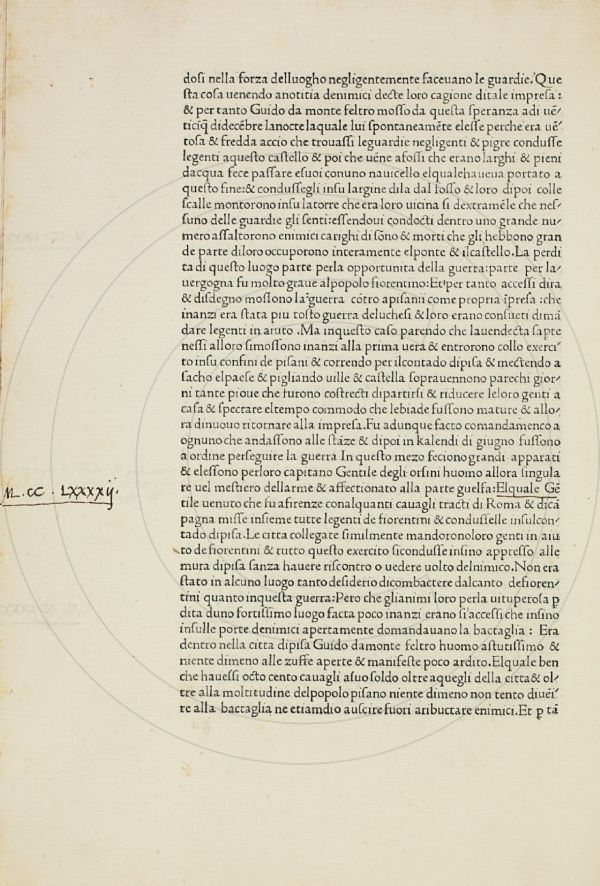 dosi nella forza delluogho negligentemente faceuano le guardie. Que
sta cosa uenendo anotitia denimici decte loro cagione ditale impresa:
& per tanto Guido da monte feltro mosso da questa speranza adi uē-
ticīq̄ didecēbre lanocte laquale lui spontaneamēte elesse perche era uē-
tosa & fredda accio che trouassi leguardie negligenti & pigre condusse
legenti aquesto castello & poi che uēne afossi che erano larghi & pieni
dacqua fece passare esuoi conuno nauicello elqualehaueua portato a
questo fine: & condussegli insu largine dila dal fosso & loro dipoi colle
scalle montorono insu latorre che era loro uicina si dextramēle che nes-
suno delle guardie gli senti: essendoui condocti dentro uno grande nu-
mero assaltorono enimici carighi di sōno & morti che gli hebbono gran
de parte diloro occuporono interamente elponte & ilcastello. La perdi
ta di questo luogo parte perla opportunita della guerra: parte per la-
uergogna fu molto graue alpopolo fiorentino: Et per tanto accessi dira
& disdegno mossono la guerra cōtro apisani come propria īpresa: che
inanzi era stata piu tosto guerra deluchesi & loro erano consueti dimā
dare legenti in aiuto. Ma inquesto caso parendo che lauendecta sapte
nessi alloro simossono inanzi alla prima uera & entrorono collo exerci-
to insu confini de pisani & correndo per ilcontado dipisa & mectendo a
sacho elpaese & pigliando uille & castella soprauennono parechi gior-
ni tante pioue che furono costrecti dipartirsi & riducere leloro genti a
casa & spectare eltempo commodo che lebiade fussono mature & allo-
ra dinuouo ritornare alla impresa. Fu adunque facto comandamenco a
ognuno che andassono alle stāze & dipoi in kalendi di giugno fussono
a ordine perseguire la guerra In questo mezo feciono grandi apparati
& elessono perloro capitano Gentile degli orsini huomo allora singula
re uel mestiero dellarme & affectionato alla parte guelfa: Elquale Gē
tile uenuto che fu afirenze conalquanti cauagli tracti di Roma & dicā
M. CC. LXXXXIJ.
pagna misse insieme tutte legenti de fiorentini & condusselle insulcon-
tado dipisa. Le citta collegate similmente mandoronoloro genti in aiu
to de fiorentini & tutto questo exercito sicondusse insino appresso alle
mura dipisa sanza hauere riscontro o uedere uolto delnimico. Non era
stato in alcuno luogo tanto desiderio dicombactere dalcanto defioren-
tini quanto inquesta guerra: Pero che glianimi loro perla uituperosa p
dita duno fortissimo luogo facta poco inanzi erano si accessi che insino
insulle porte denimici apertamente domandauano la bactaglia: Era
dentro nella citta dipisa Guido damonte feltro huomo astutissimo &
niente dimeno alle zuffe aperte & manifeste poco ardito. Elquale ben
che hauessi octo cento cauagli asuo soldo oltre aquegli della citta & ol-
tre alla moltitudine delpopolo pisano niente dimeno non tento diuēi-
re alla bactaglia ne etiamdio auscire fuori aributtare enimici. Et p tā